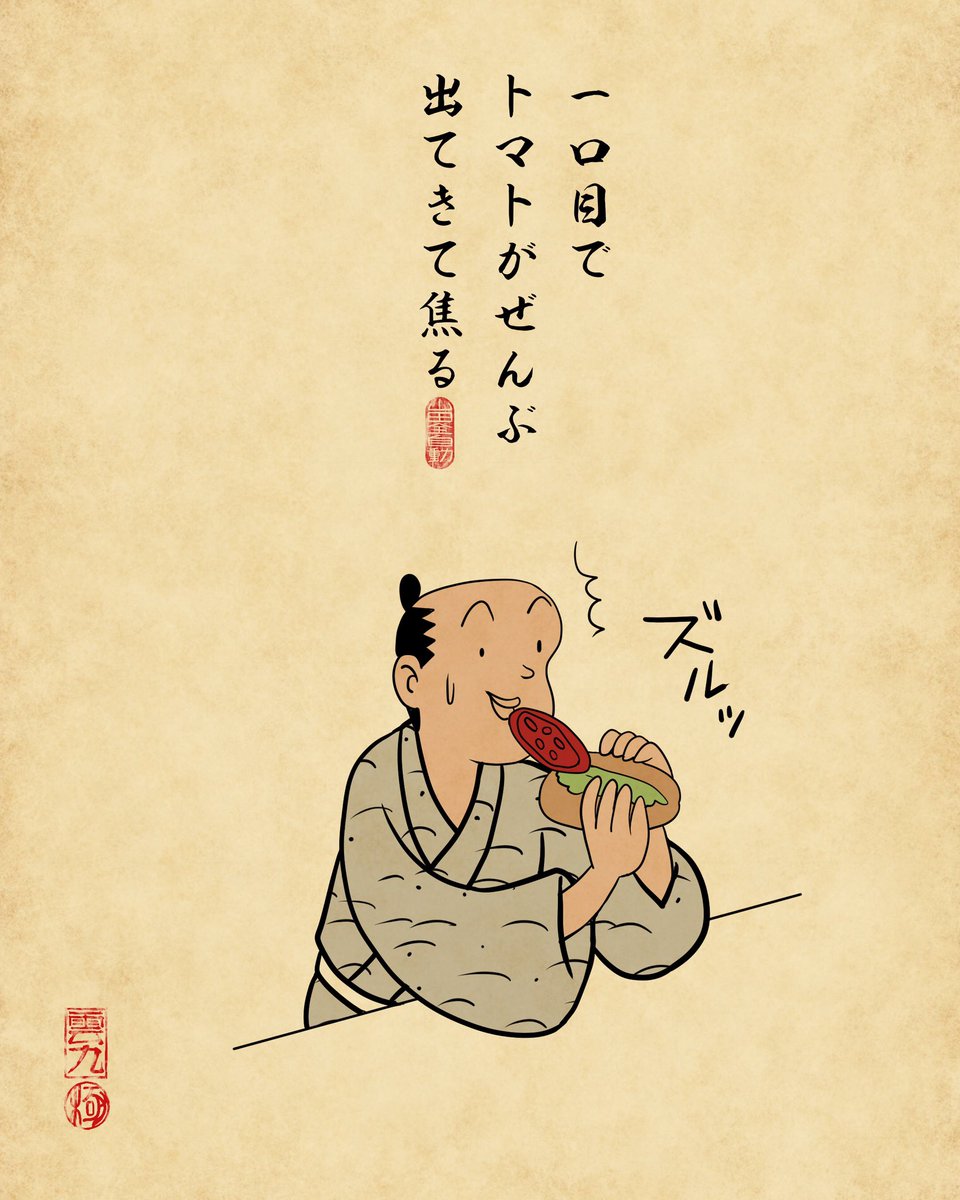 一口目で
トマトがぜんぶ
出てきて焦る
ズルッ